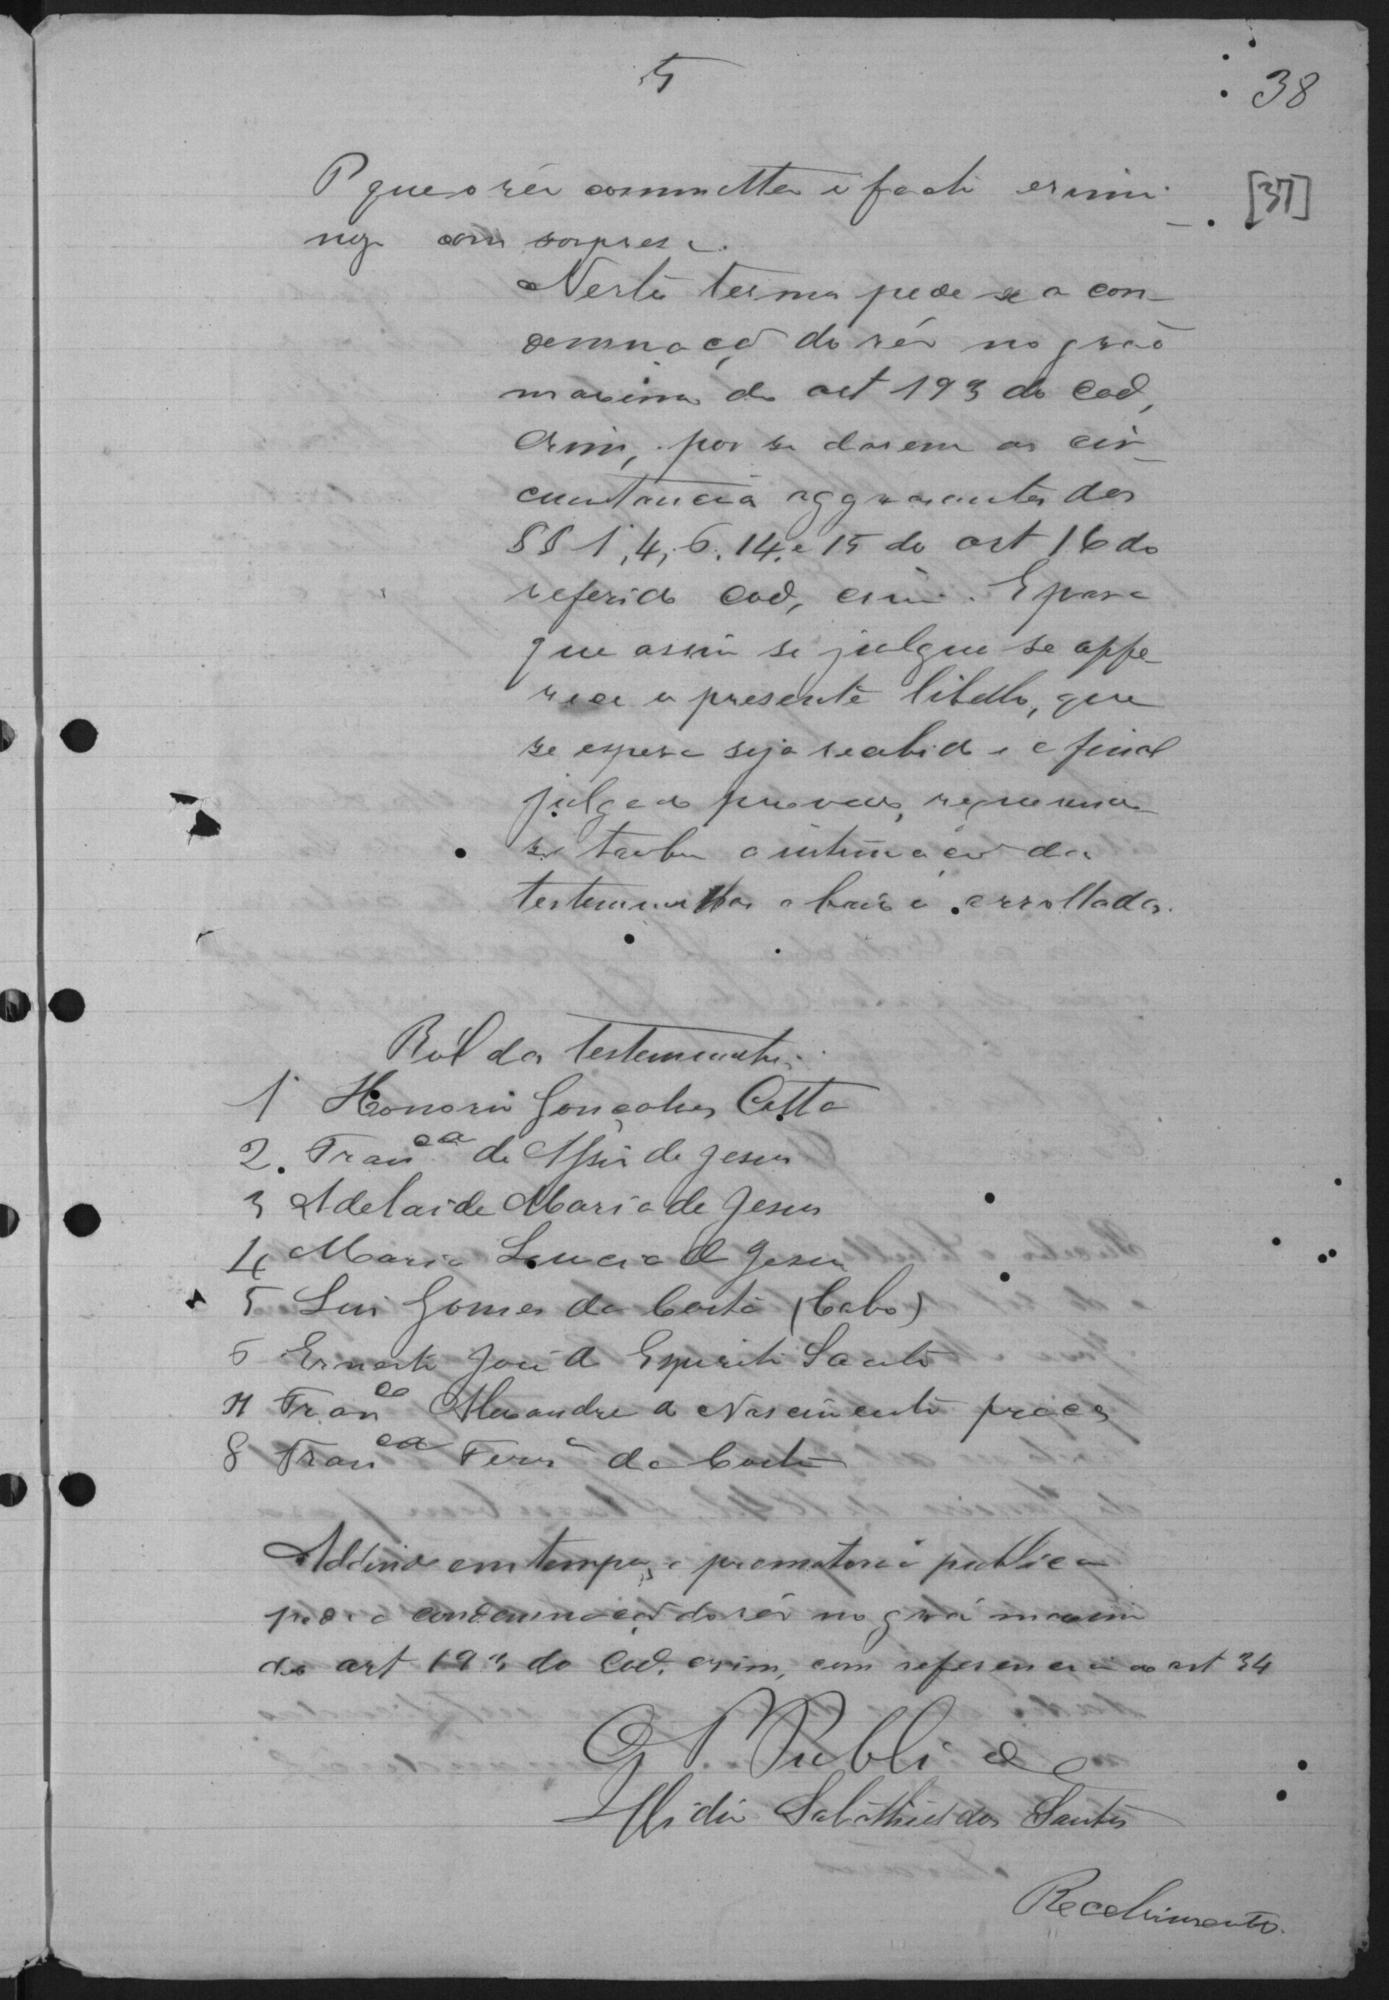 5
38
[37]
P que o réu commetteu o facto crimi-
nozo com sorpresa.
Nestes termos pede se a con-
demnação do réu no gráo
maximo do art 193 do Cod,
Crim, por se darem as cir-
cunstancias aggravantes dos
§§ 1, 4, 6, 14, e 15 do art 16 do
referido Cod, crim. E para
que assim se julgue se offe-
rece o presente libello, que
se espera seja recebido e a final
julgado provado, requerendo
se tambem a intimação das
testemunhas abaixo arrolladas.
Ról das testemunhas
1 Honorio Gonçalves Cotta
2. Fran.ca de Assis de Jesus
3 Adelaide Maria de Jesus
4 Maria Lucia de Jesus
5 Luis Gomes da Costa (Cabo)
6 Ernesto José do Espirito Santo
7 Fran.co Alexandre do Nascimento praça
8 Fran.ca Ferr.a da Costa
Addindo em tempo, a promotoria publica
pede a condemnação do réu no gráo maximo
do art 193 do Cod. crim, com referencia ao art 34
O P. Publico
Illidio Salathiel dos Santos
Recebimento.